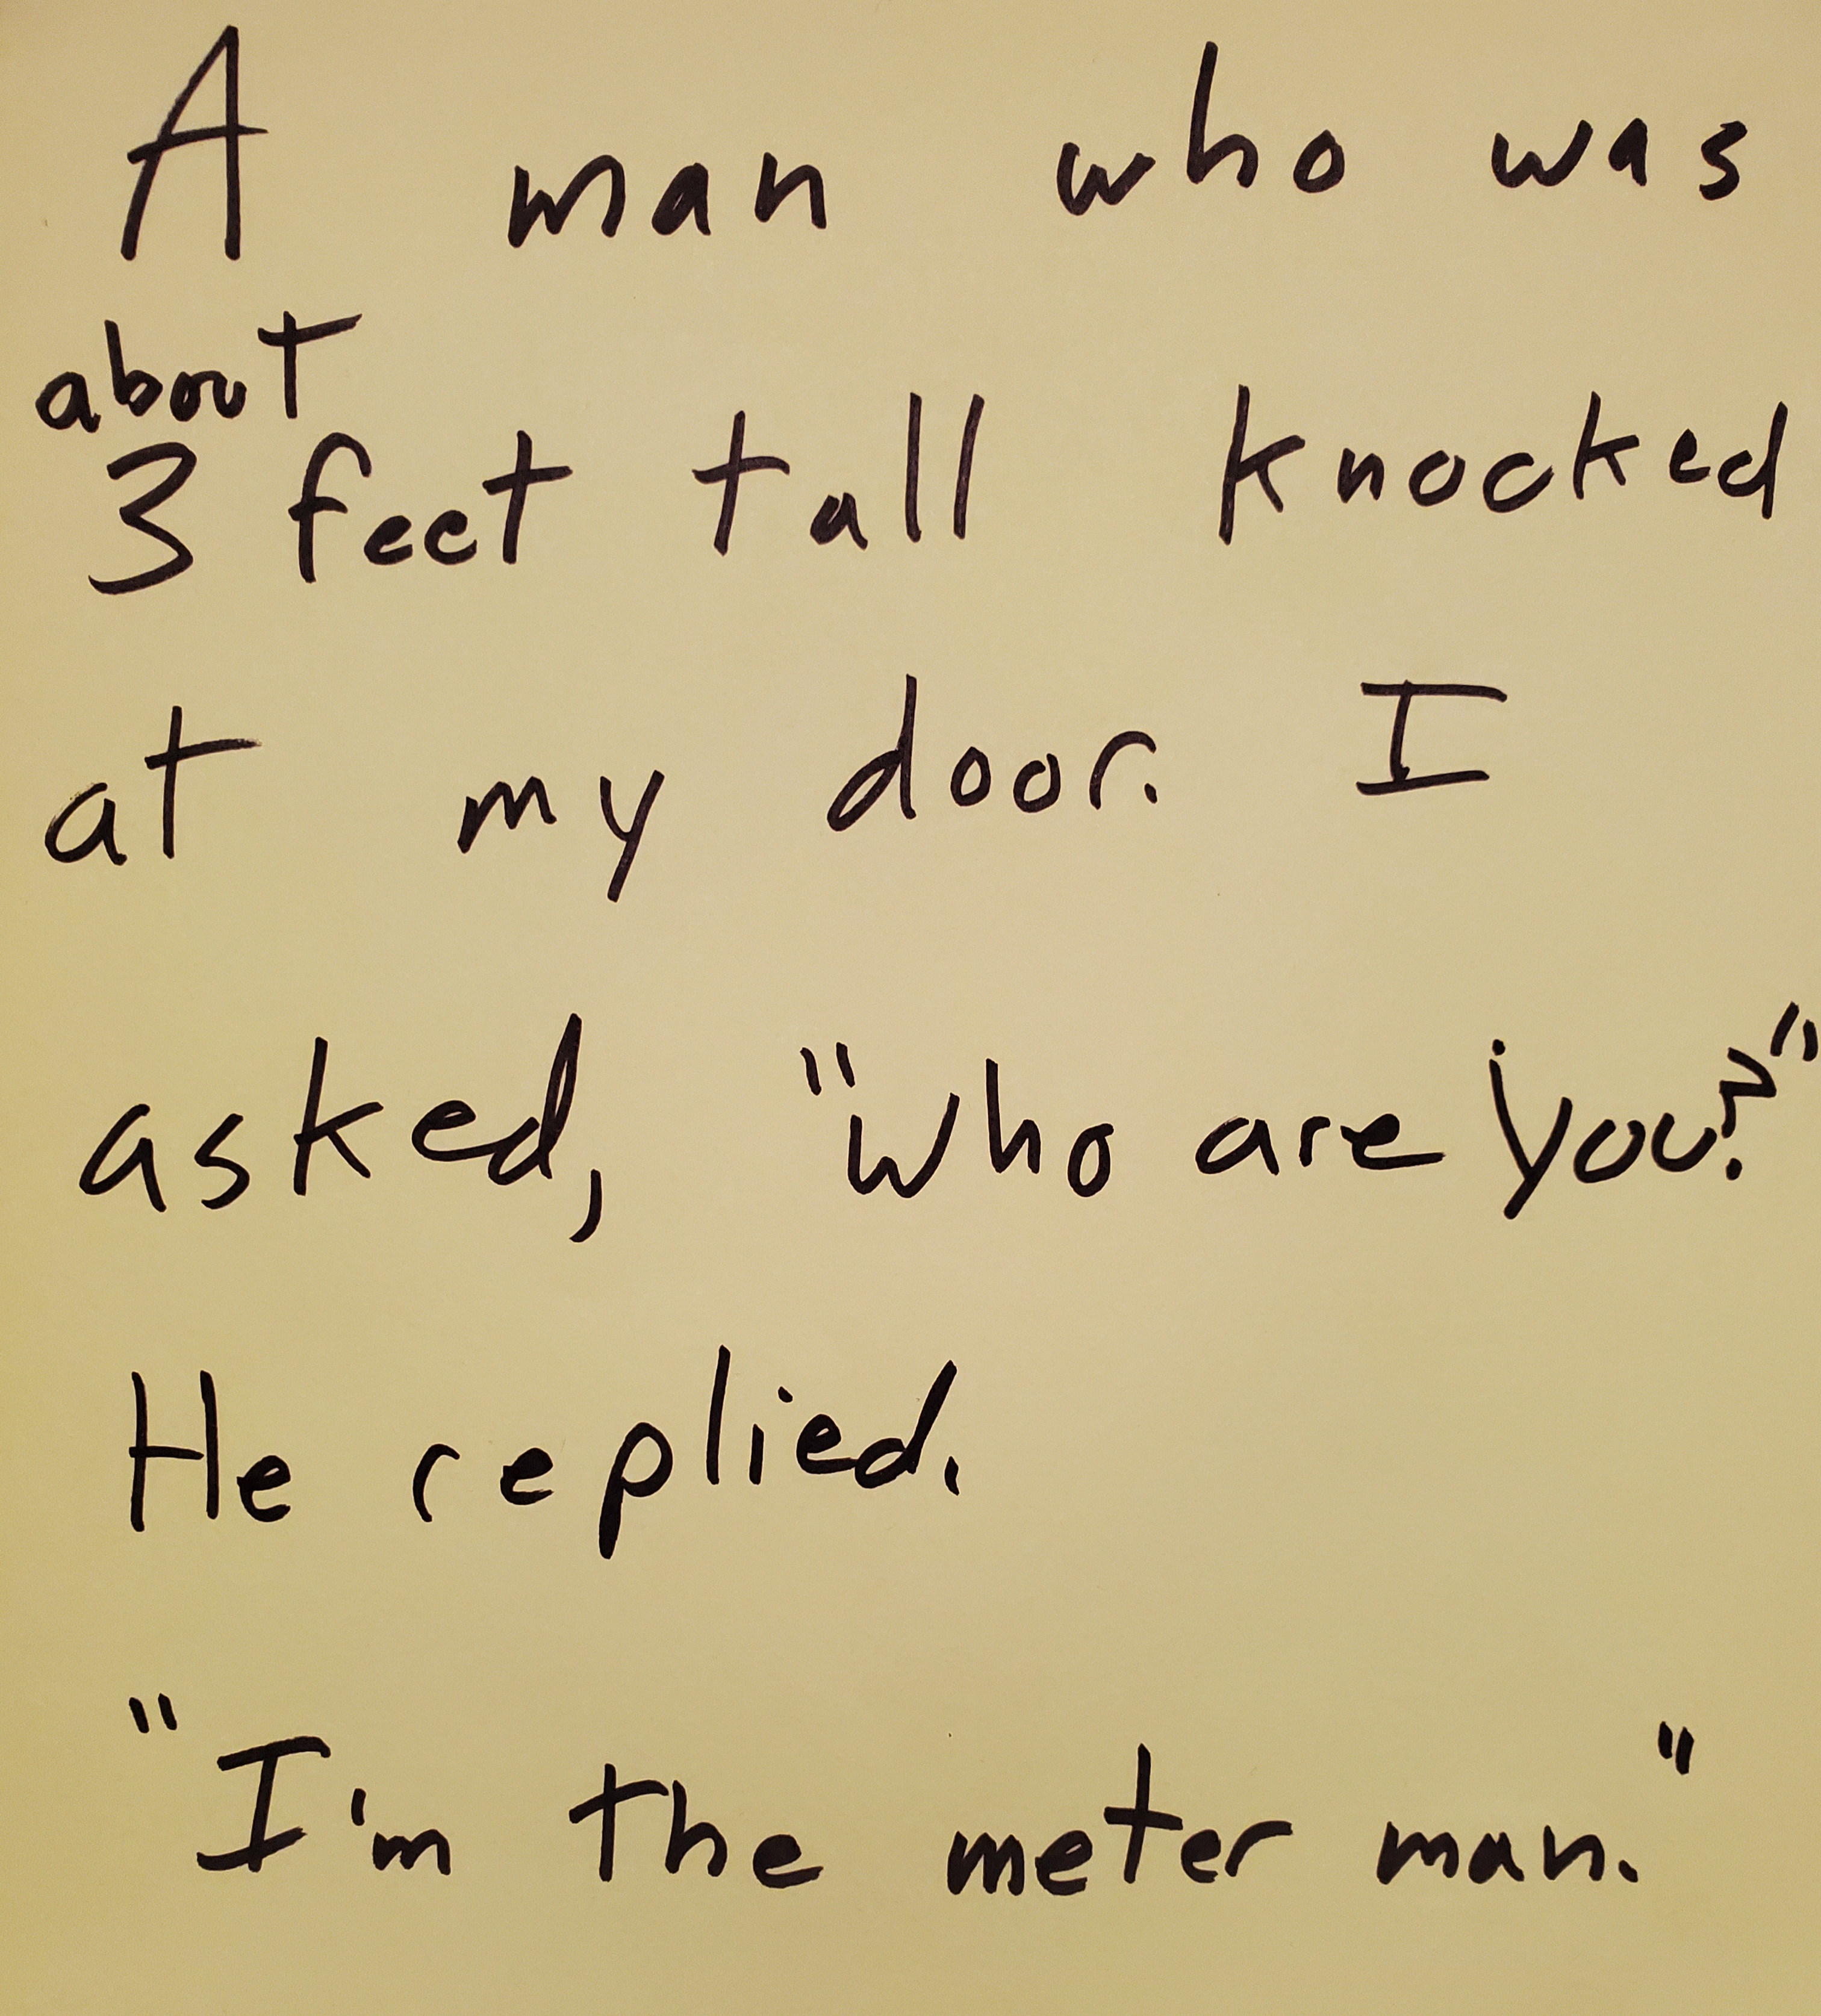 A man who was
about
3 feet tall knocked
at my door. I
asked, "who are you?"
He replied.
"I'm the meter man."